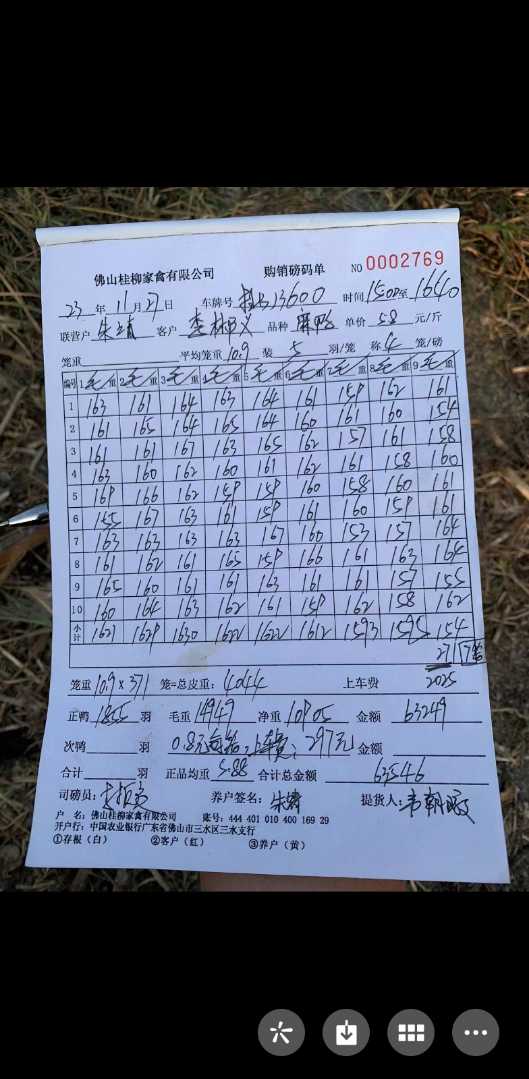 佛山桂柳家禽有限公司 购销磅码单 NO 0002769
23 年 11 月 27 日 车牌号 13600 时间 至 1640
联营户 客户 品种 麻鸭 单价 5.8 元/斤
笼重 平均笼重 10.9 装 5 羽/笼 称 4 笼/磅
编号 1 毛重 2 毛重 3 毛重 4 毛重 5 毛重 6 毛重 7 毛重 8 毛重 9 毛重
1 163 161 164 163 164 161 159 162 161
2 161 165 164 165 164 160 161 160 154
3 161 161 167 163 165 162 157 161 158
4 163 160 162 160 161 162 161 158 160
5 169 166 162 159 159 160 158 160 161
6 155 167 163 161 159 161 160 159 161
7 163 163 163 163 167 160 153 157 164
8 161 162 161 165 159 166 161 163 164
9 165 160 161 161 163 161 161 157 155
10 160 164 163 162 161 159 162 158 162
小计 1621 1629 1630 1622 1622 1612 1593 1595 154
27
笼重 10.9 × 371 笼=总皮重: 4044 上车费 2025
正鸭 1855 羽 毛重 14949 净重 10905 金额 63249
次鸭 羽 297元 金额
合计 羽 正品均重 5.88 合计总金额 63546
司磅员: 养户签名: 提货人:
户 名: 佛山桂柳家禽有限公司 账号: 444 401 010 400 169 29
开户行: 中国农业银行广东省佛山市三水区三水支行
①存根(白) ②客户(红) ③养户(黄)